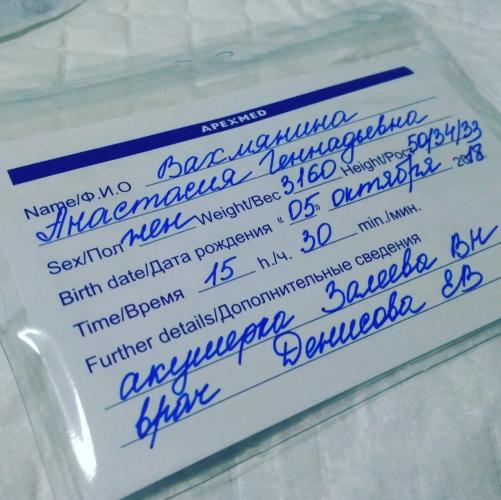 APEXMED
Name/Ф.И.О Вахмянина
Анастасия Геннадьевна
Sex/Пол жен Weight/Вес 3160 Height/Рост 50/34/33
Birth date/Дата рождения «05» октября 2018
Time/Время 15 h./ч. 30 min./мин.
Further details/Дополнительные сведения
акушерка Залеева ВН
врач Денисова ЕВ